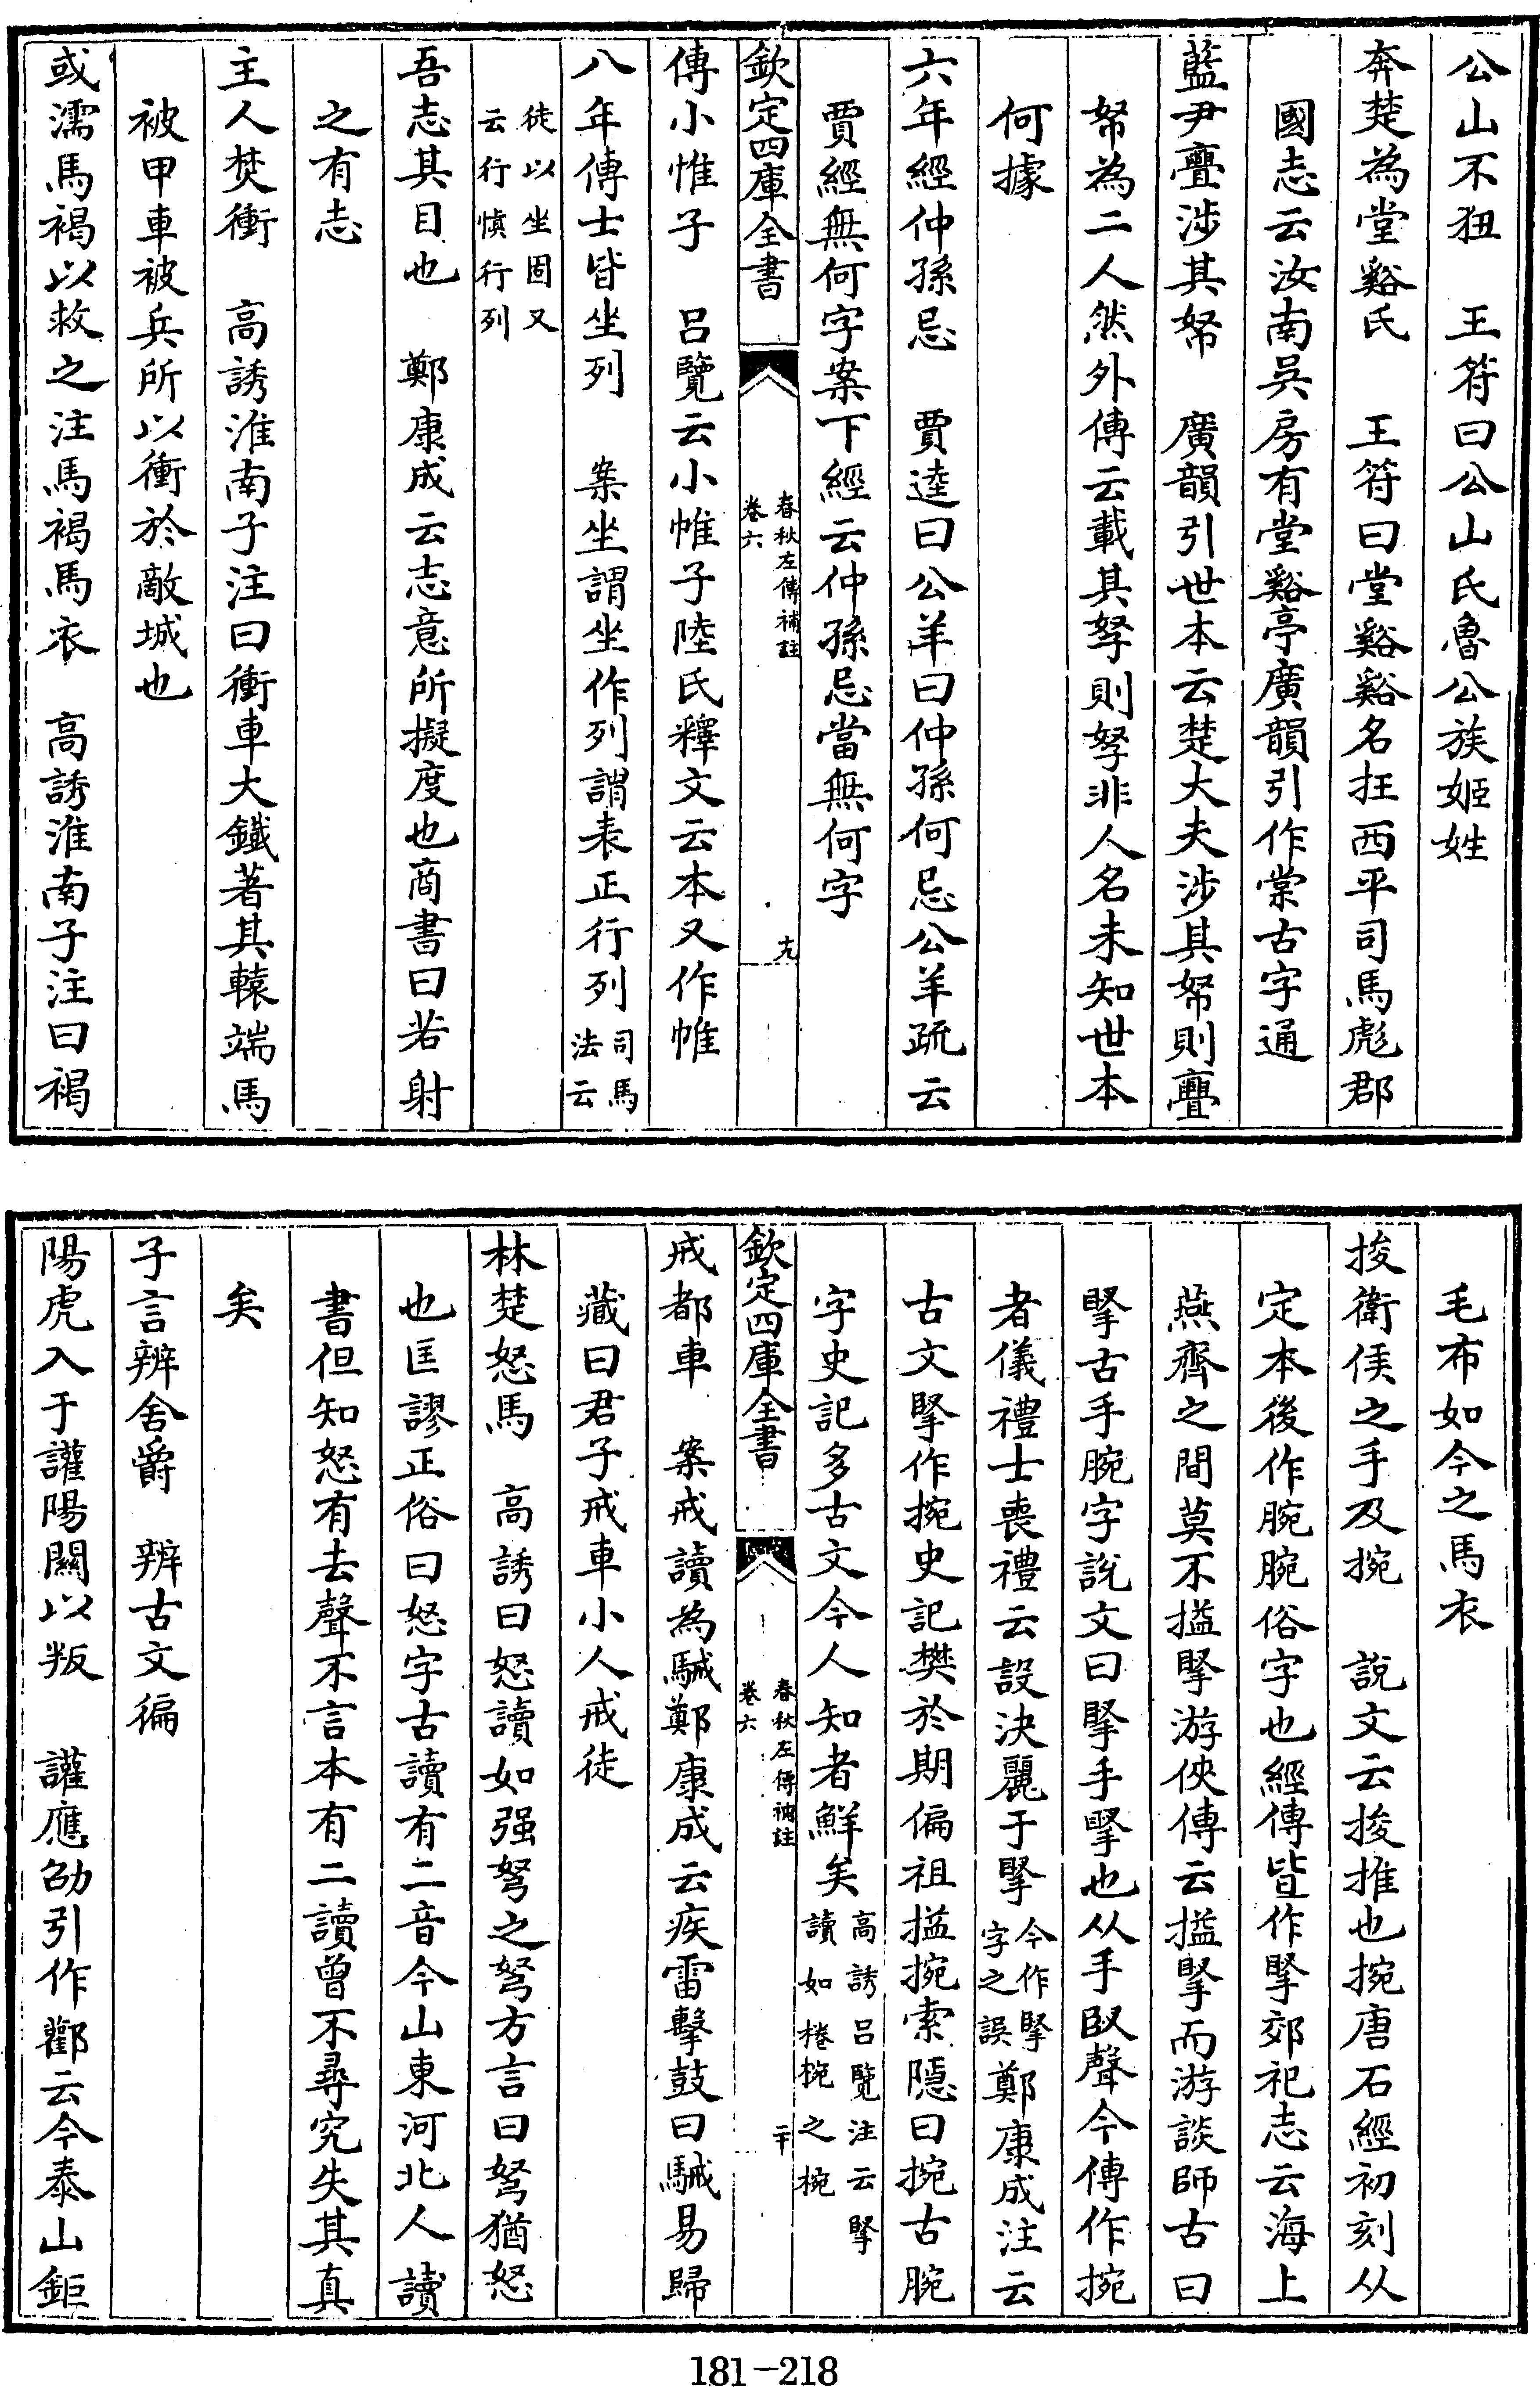 公山不狃　王符曰公山氏魯公族姬姓
奔楚為堂谿氏　王符曰堂谿谿名在西平司馬彪郡
國志云汝南吳房有堂谿亭廣韻引作棠古字通
藍尹亹涉其帑　廣韻引世本云楚大夫涉其帑則亹
帑為二人然外傳云載其孥則孥非人名未知世本
何據
六年經仲孫忌　賈逵曰公羊曰仲孫何忌公羊疏云
賈經無何字案下經云仲孫忌當無何字
欽定四庫全書
春秋左傳補註
卷六
十九
傳小惟子　呂覽云小帷子陸氏釋文云本又作帷
八年傳士皆坐列　案坐謂坐作列謂表正行列司馬法云
徒以坐固又云行慎行列
吾志其目也　鄭康成云志意所擬度也商書曰若射
之有志
主人焚衝　高誘淮南子注曰衝車大鐵著其轅端馬
被甲車被兵所以衝於敵城也
或濡馬褐以救之注馬褐馬衣　高誘淮南子注曰褐
毛布如今之馬衣
捘衛侯之手及捥　說文云捘推也捥唐石經初刻从
定本後作腕腕俗字也經傳皆作掔郊祀志云海上
燕齊之間莫不搤掔游俠傳云搤掔而游談師古曰
掔古手腕字說文曰掔手掔也从手臤聲今傳作捥
者儀禮士喪禮云設決麗于掔今作掔字之誤鄭康成注云
古文掔作捥史記樊於期偏袒搤捥索隱曰捥古腕
字史記多古文今人知者鮮矣高誘呂覽注云掔讀如棬椀之椀
欽定四庫全書
春秋左傳補註
卷六
二十
戒都車　案戒讀為駴鄭康成云疾雷擊鼓曰駴易歸
藏曰君子戒車小人戒徒
林楚怒馬　高誘曰怒讀如强弩之弩方言曰弩猶怒
也匡謬正俗曰怒字古讀有二音今山東河北人讀
書但知怒有去聲不言本有二讀曾不尋究失其真
矣
子言辨舍爵　辨古文徧
陽虎入于讙陽關以叛　讙應劭引作酄云今泰山鉅
181-218